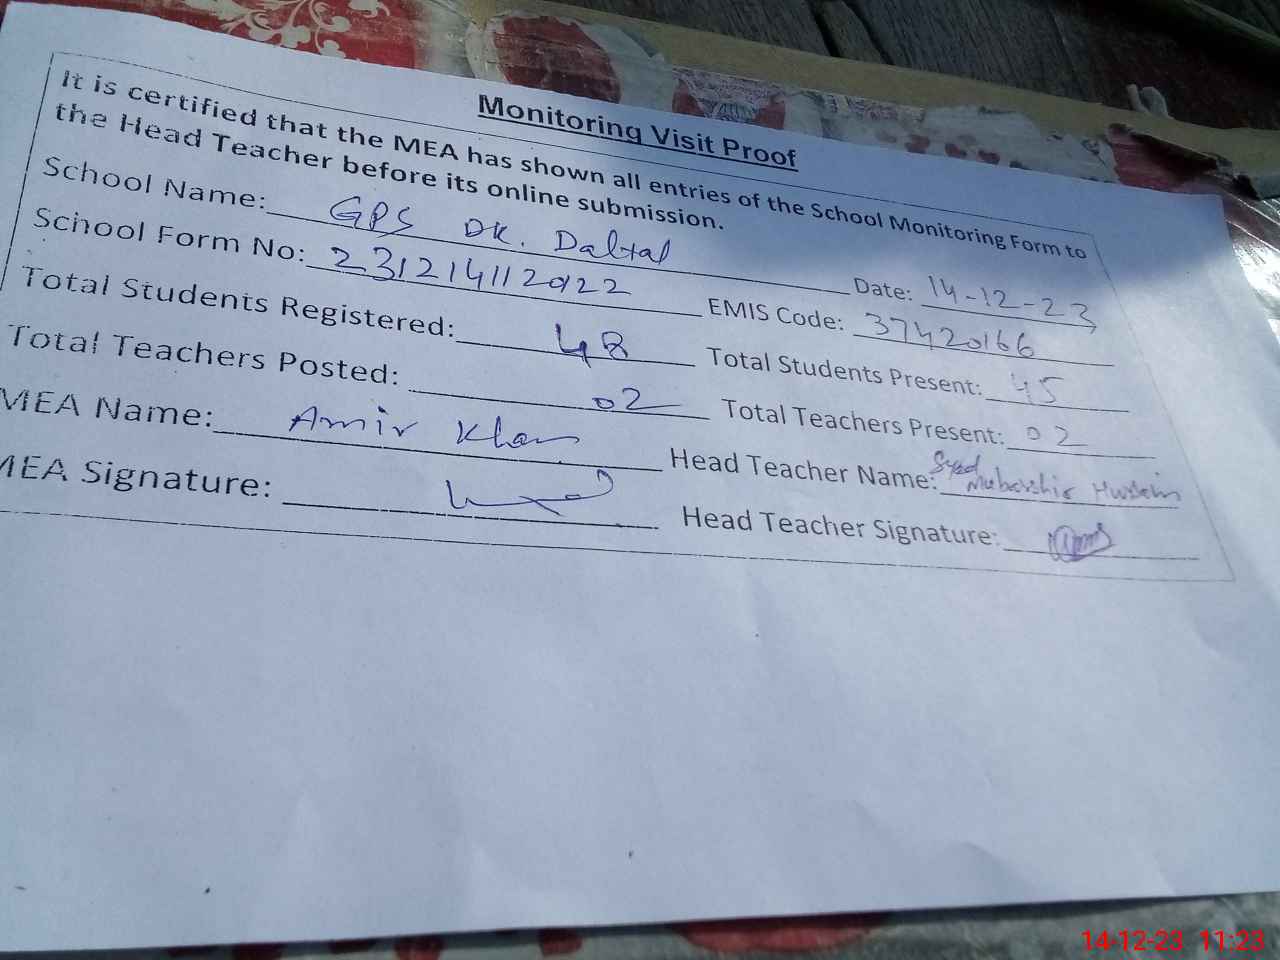 Monitoring Visit Proof
It is certified that the MEA has shown all entries of the School Monitoring Form to
the Head Teacher before its online submission.
School Name: GPS DK. Daltal Date: 14-12-23
School Form No: 231214112022 EMIS Code: 37420166
Total Students Registered: 48 Total Students Present: 45
Total Teachers Posted: 02 Total Teachers Present: 02
MEA Name: Amir Khan Head Teacher Name: Syed Mubarshir Hussain
MEA Signature: Head Teacher Signature:
14-12-23 11:23